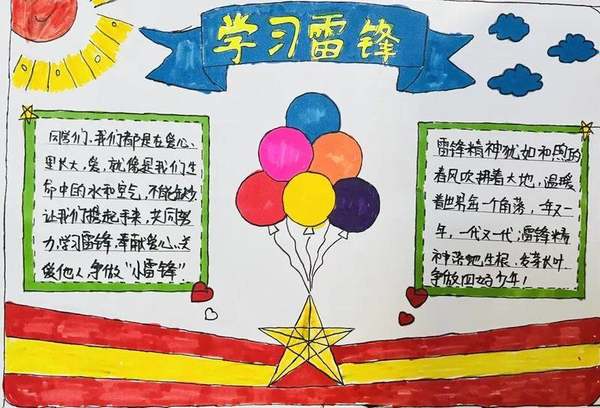 学习雷锋
同学们,我们都是在爱心
里长大,爱,就像是我们生
命中的水和空气,不能缺少,
让我们携起手来,共同努
力,学习雷锋,奉献爱心,关
爱他人,争做“小雷锋”
雷锋精神犹如和煦的
春风吹拂着大地,温暖
着世界每一个角落,一年又一
年,一代又一代,雷锋精
神落地生根、发芽长叶
争做四好少年!